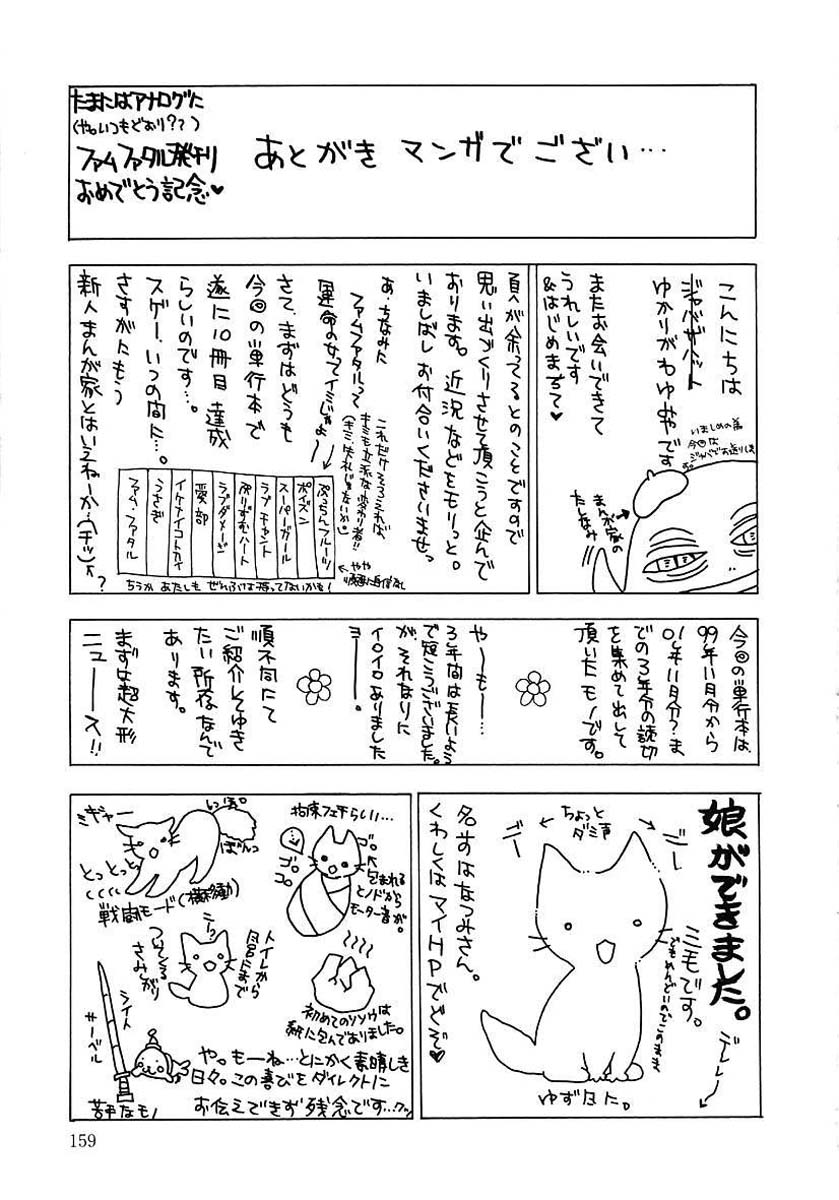 たまにはアナログに
(やっいつもどおり??)
ファムファタル発刊
おめでとう記念♥
あとがき マンガで ござい…
こんにちは
ジャバザハット
ゆかりがわゆみやです
またお会いできて
うれしいです
&はじめまちて♥
いましめの為
今回は
ジャバでお送りしま
す。
まんが家の
たしなみ
頁が余ってるとのことですので
思い出づくりさせて頂こうと企んで
おります。近況などをモリっと。
いましばし お付合いくださいませっ
あ、ちなみに
ファムファタルって
運命の女ってイミじゃよ〜
これだけそろえれば
キミも立派な変わり者!!
(キミに失礼じゃないか)
さて、まずはどうも
今回の単行本で
遂に10冊目達成
らしいのです…。
スゲー、いつの間に…。
さすがにもう
新人まんが家とはいえねーか…(チッ)
ぷっちんフルーツ
ポイズン
スーパーガール
ラブチャント
ぷりずむハート
ラブダメージ
愛部
イケナイコトカイ
うさぎ
ファム・ファタル
やや
順番に自信なし
ちうか あたしも ぜんぶは持ってないかも!
?
今回の単行本は、
99年11月分から
01年11月分?ま
での3年分の読切
を集めて出して
頂いたモノです。
や〜も〜…
3年間は長いよう
で短こうございました。
が、それなりに
イロイロありました
ヨー。
順不同にて
ご紹介してゆき
たい所存なんで
あります。
まずは超大形
ニュース!!
娘ができました。
三毛です。
でもめんどいのでこのまま
デレレー
ちょっと
ダミ声
ニー
ゴー
名まえはなつみさん。
くわしくはマイHPでどぞ♥
ゆず〆に。
ミギャー
しっぽ。
ぼんっ
とっとっ
くくくく
戦闘モード(横移動)
拘束フェチらしい…
ゴロ
ゴロ
ゴロ
包まれる
とノドから
モーター音が。
トイレから
風呂にまで
ニっ
ついてくる
さみしがり
初めてのウンウは
紙に包んでありました。
シイト
サーベル
苦手なモノ
や。もーね…とにかく素晴しき
日々。この喜びをダイレクトに
お伝えできず残念です…クッ
159